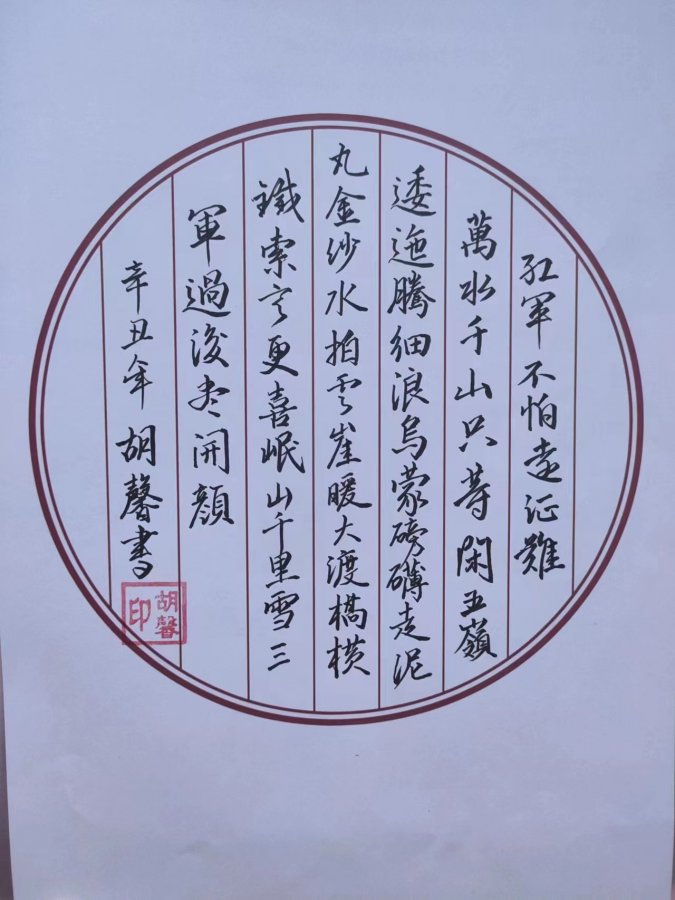 红军不怕遠征難
萬水千山只等閑五嶺
逶迤騰細浪烏蒙磅礴走泥
丸金沙水拍雲崖暖大渡橋横
鐵索寒更喜岷山千里雪三
軍過後尽開顔
辛丑年 胡馨書
胡馨印